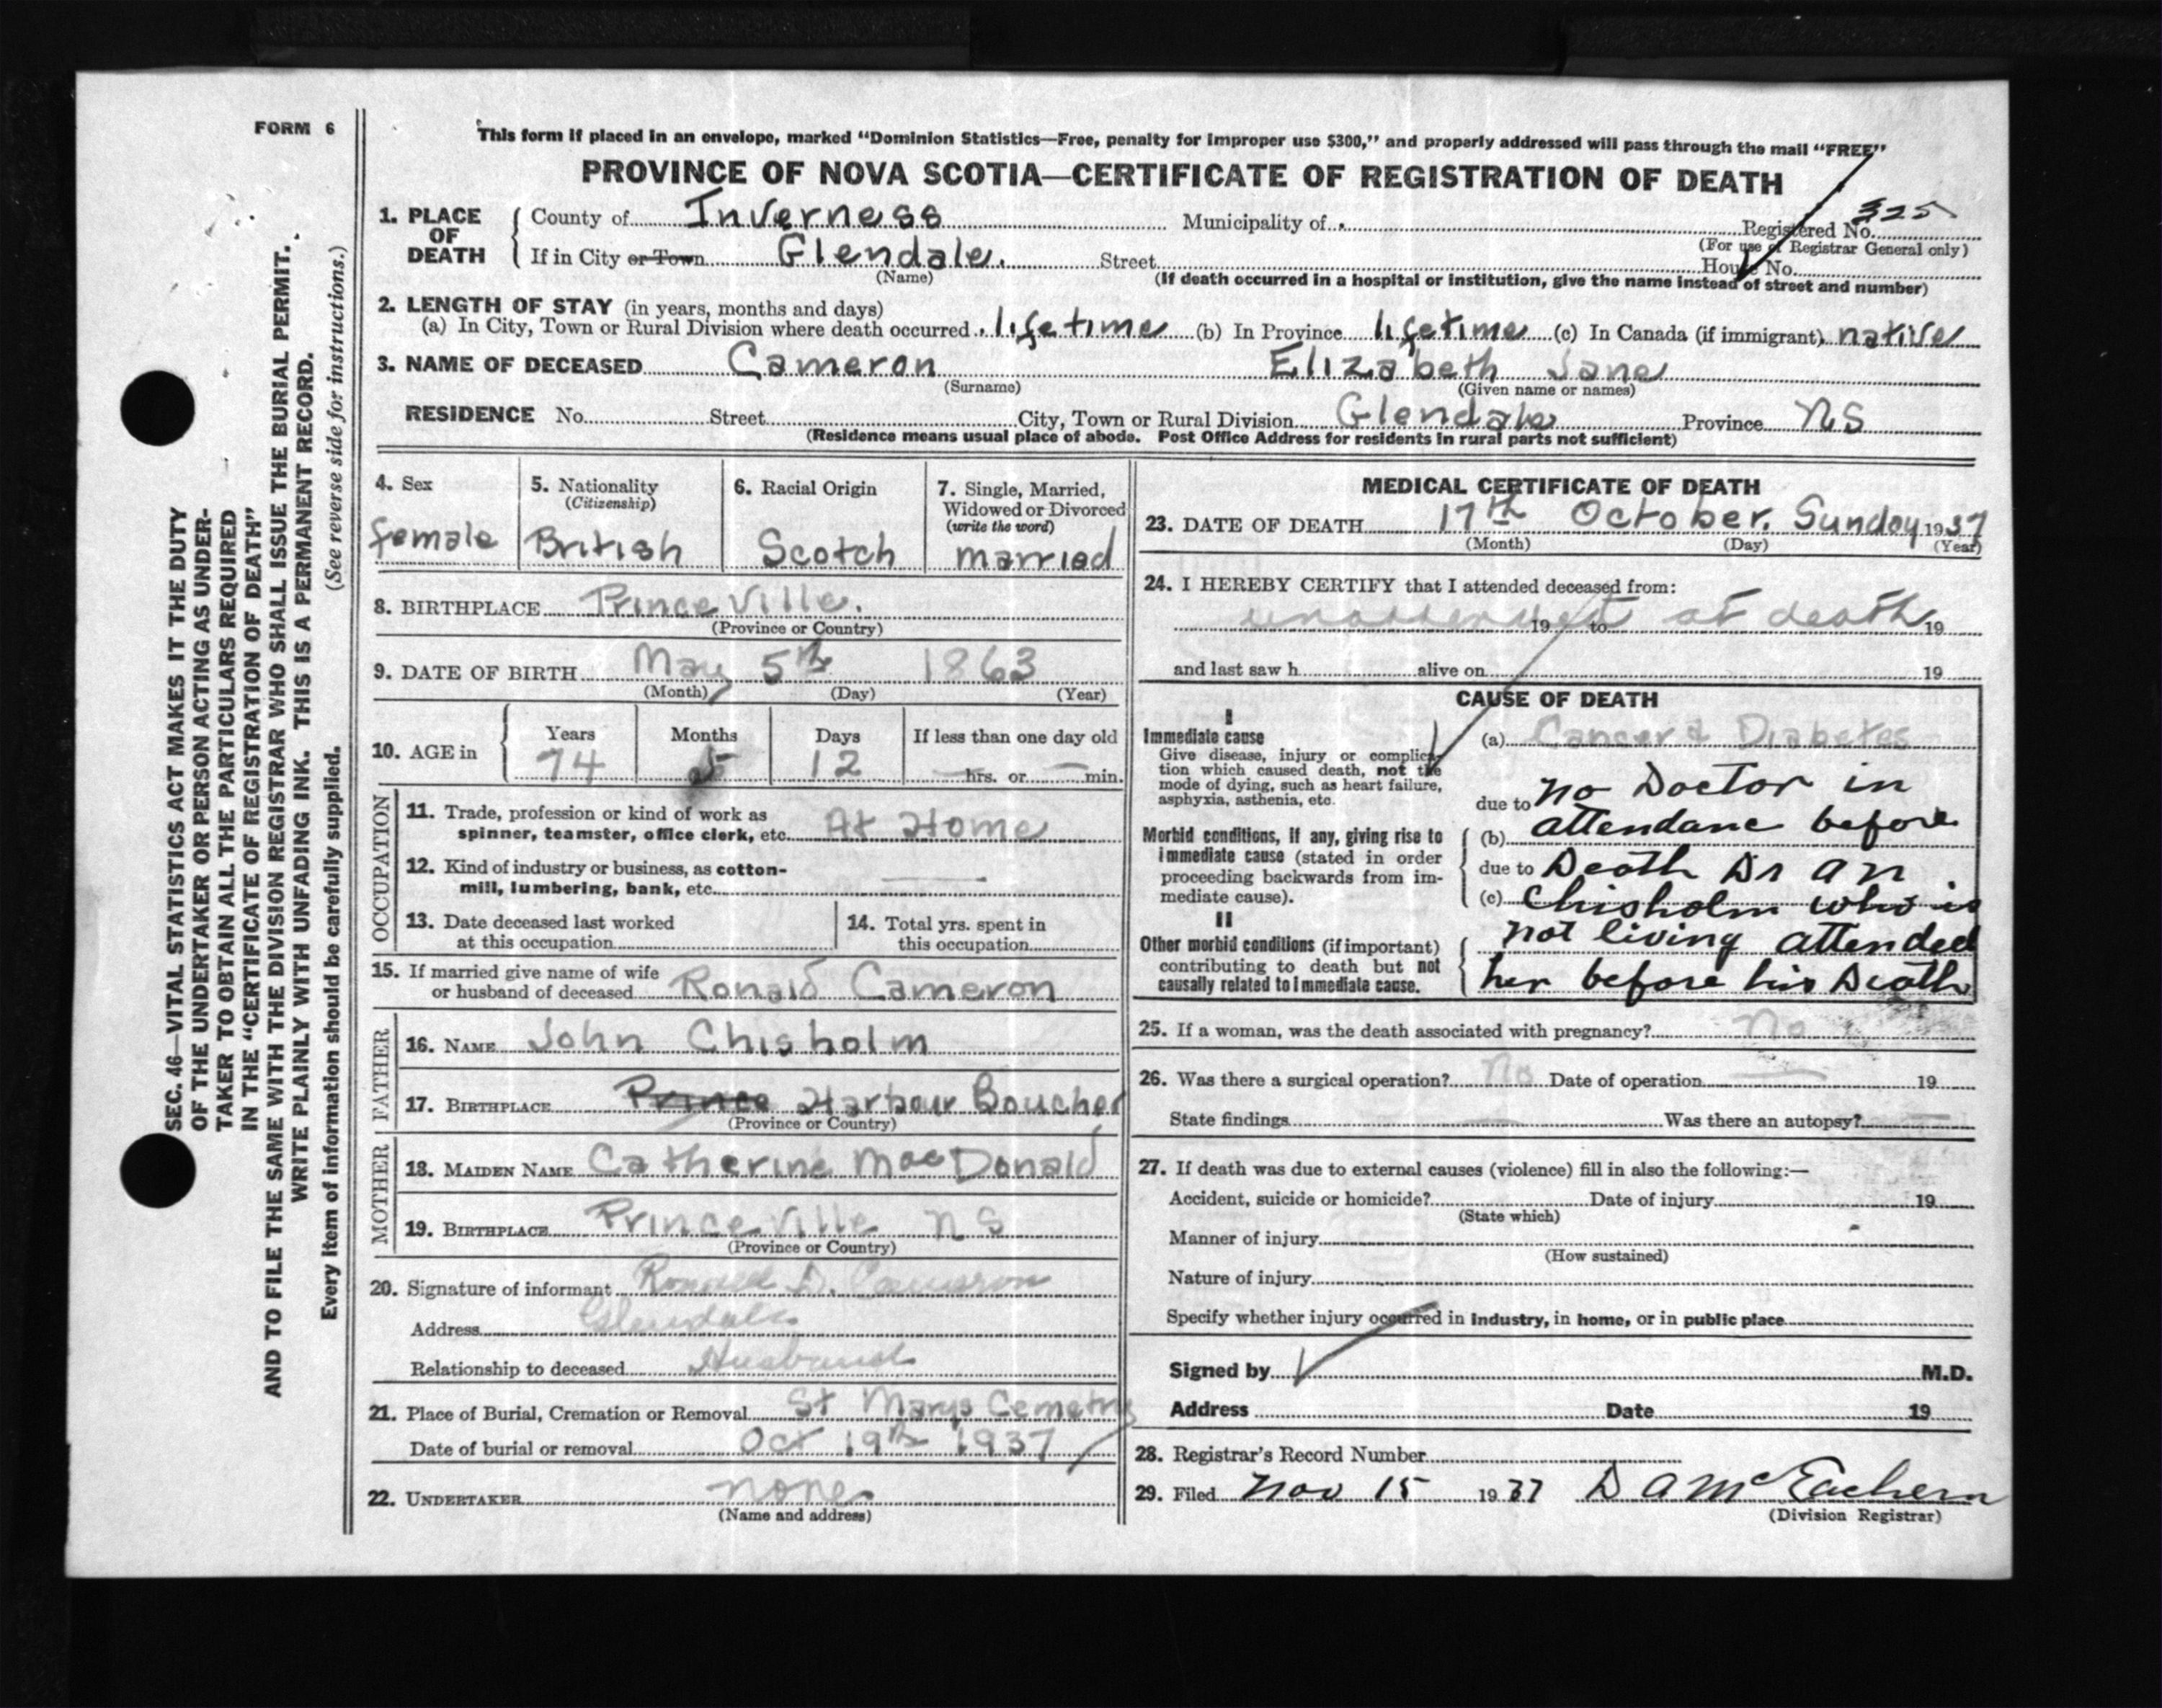 FORM 6
SEC. 46—VITAL STATISTICS ACT MAKES IT THE DUTY
OF THE UNDERTAKER OR PERSON ACTING AS UNDER-
TAKER TO OBTAIN ALL THE PARTICULARS REQUIRED
IN THE "CERTIFICATE OF REGISTRATION OF DEATH"
AND TO FILE THE SAME WITH THE DIVISION REGISTRAR WHO SHALL ISSUE THE BURIAL PERMIT.
WRITE PLAINLY WITH UNFADING INK. THIS IS A PERMANENT RECORD.
Every item of information should be carefully supplied. (See reverse side for instructions.)
This form if placed in an envelope, marked "Dominion Statistics—Free, penalty for improper use $300," and properly addressed will pass through the mail "FREE"
PROVINCE OF NOVA SCOTIA—CERTIFICATE OF REGISTRATION OF DEATH
1. PLACE OF DEATH
County of Inverness Municipality of Registered No. 325
(For use of Registrar General only)
If in City or Town Glendale. Street House No.
(Name) (If death occurred in a hospital or institution, give the name instead of street and number)
2. LENGTH OF STAY (in years, months and days)
(a) In City, Town or Rural Division where death occurred lifetime (b) In Province lifetime (c) In Canada (if immigrant) native
3. NAME OF DECEASED Cameron Elizabeth Jane
(Surname) (Given name or names)
RESIDENCE No. Street City, Town or Rural Division Glendale Province NS
(Residence means usual place of abode. Post Office Address for residents in rural parts not sufficient)
4. Sex 5. Nationality 6. Racial Origin 7. Single, Married,
(Citizenship) Widowed or Divorced
(write the word)
female British Scotch married
8. BIRTHPLACE Princeville.
(Province or Country)
9. DATE OF BIRTH May 5th 1863
(Month) (Day) (Year)
10. AGE in Years Months Days If less than one day old
74 5 12 — hrs. or — min.
OCCUPATION
11. Trade, profession or kind of work as
spinner, teamster, office clerk, etc. At Home
12. Kind of industry or business, as cotton-
mill, lumbering, bank, etc.
13. Date deceased last worked
at this occupation
14. Total yrs. spent in
this occupation
15. If married give name of wife
or husband of deceased Ronald Cameron
FATHER
16. NAME John Chisholm
17. BIRTHPLACE Prince Harbour Boucher
(Province or Country)
MOTHER
18. MAIDEN NAME Catherine MacDonald
19. BIRTHPLACE Princeville NS
(Province or Country)
20. Signature of informant Ronald D. Cameron
Address Glendale
Relationship to deceased Husband
21. Place of Burial, Cremation or Removal St Marys Cemetry
Date of burial or removal Oct 19th 1937
22. UNDERTAKER none
(Name and address)
MEDICAL CERTIFICATE OF DEATH
23. DATE OF DEATH 17th October. Sunday 1937
(Month) (Day) (Year)
24. I HEREBY CERTIFY that I attended deceased from:
19 to at death 19
and last saw h alive on 19
CAUSE OF DEATH
I
Immediate cause
Give disease, injury or complica-
tion which caused death, not the
mode of dying, such as heart failure,
asphyxia, asthenia, etc.
(a) Cancer & Diabetes
due to no Doctor in
Morbid conditions, if any, giving rise to
immediate cause (stated in order
proceeding backwards from im-
mediate cause).
(b) attendanc before
due to Death Dr A N
(c) Chisholm who is
II
Other morbid conditions (if important)
contributing to death but not
causally related to immediate cause.
not living attended
her before his Death
25. If a woman, was the death associated with pregnancy? No
26. Was there a surgical operation? No Date of operation — 19
State findings — Was there an autopsy? —
27. If death was due to external causes (violence) fill in also the following:—
Accident, suicide or homicide? Date of injury 19
(State which)
Manner of injury
(How sustained)
Nature of injury
Specify whether injury occurred in industry, in home, or in public place
Signed by M.D.
Address Date 19
28. Registrar's Record Number
29. Filed Nov 15 1937 D A McEachern
(Division Registrar)